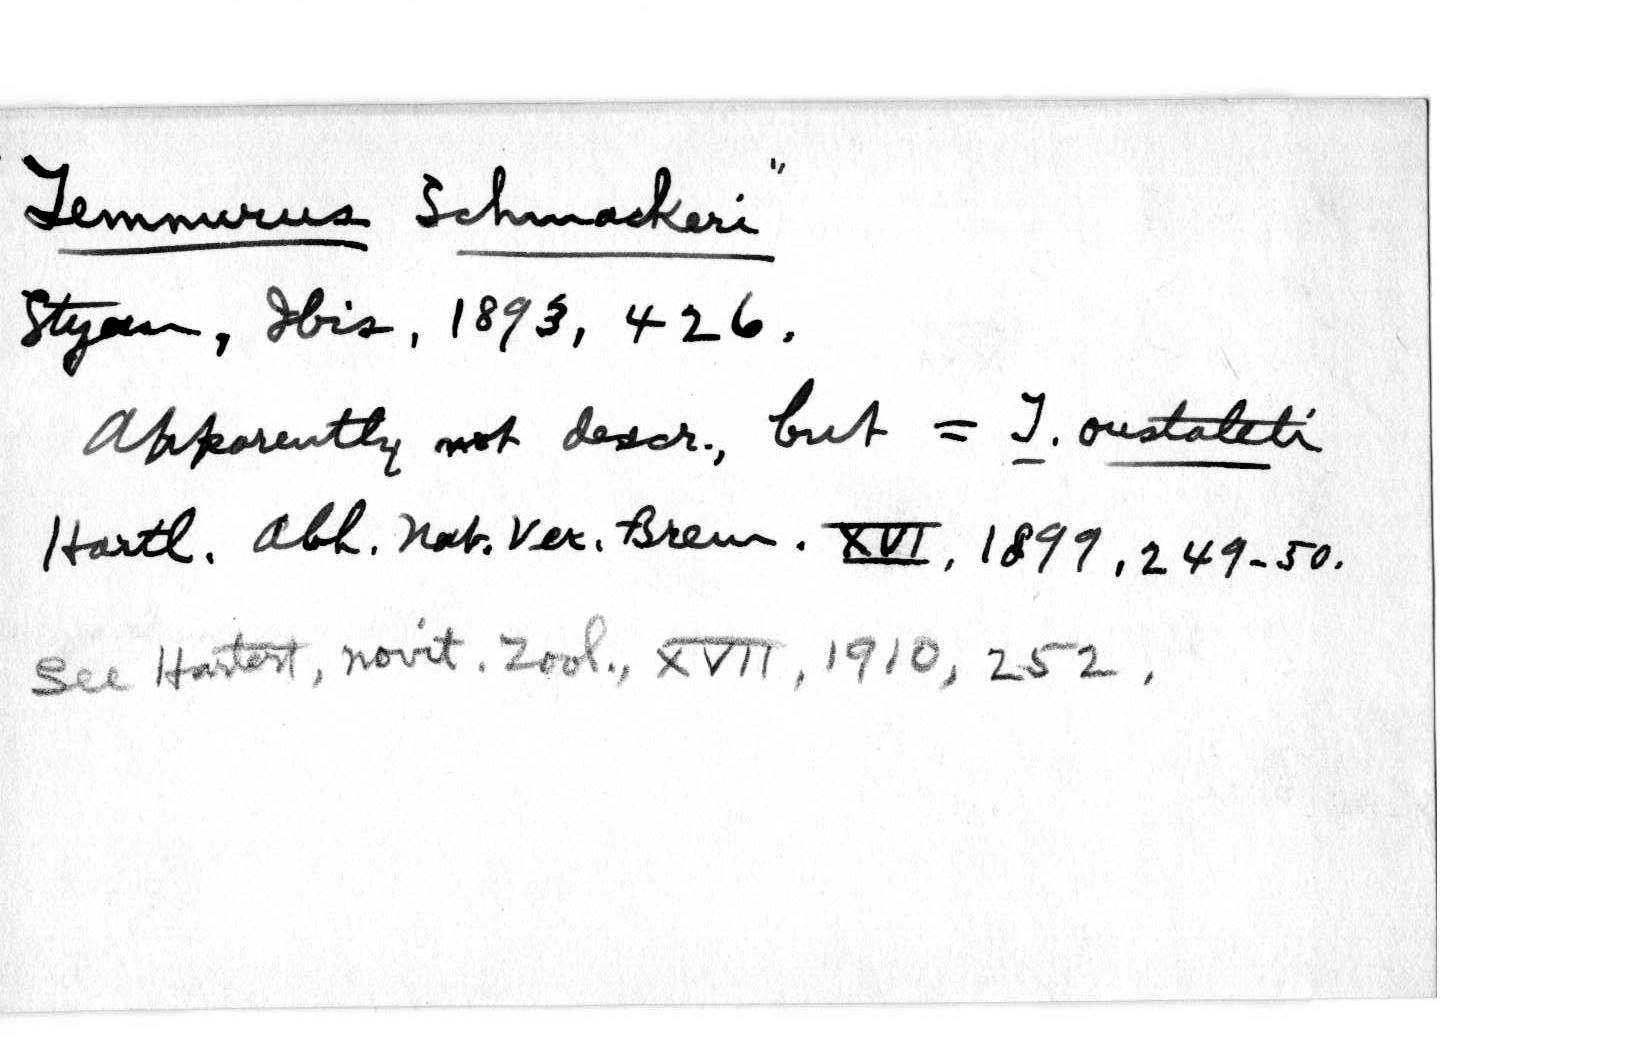 "Temnurus Schmackeri"
Styan, Ibis, 1893, 426.
Apparently not descr., but = T. oustaleti
Hartl. Abh. Nat. Ver. Brem. XVI, 1899, 249-50.
See Hartert, Novit. Zool., XVII, 1910, 252.